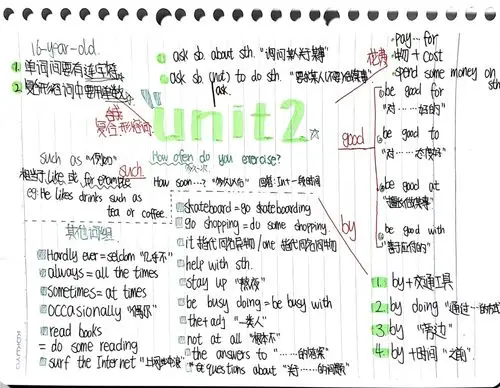 16-year-old.
1. 单词间要有连字符
2. 复合形容词中要用单数
合成
复合形容词
ask sb. about sth. "询问某人某事"
ask sb. (not) to do sth. "要求某人(不要)做某事"
ask.
花费
pay… for
物 + cost
spend some money on sth
unit2
How often do you exercise?
How soon…? 回答: In + 一段时间
such
such as "例如"
相当于 like 或 for example
eg: He likes drinks such as
tea or coffee.
good
be good for
"对……好的"
be good to
"对……态度好"
be good at
"擅长做某事"
be good with
"善于应付的"
其他词组
Hardly ever = seldom "几乎不"
always = all the times
sometimes = at times
occasionally "偶尔"
read books
= do some reading
surf the Internet "上网冲浪"
skateboard = go skateboarding
go shopping = do some shopping.
it 替代同名异物/one 替代同名同物
help with sth.
stay up "熬夜"
be busy doing = be busy with
the + adj "一类人"
not at all "根本不"
the answers to "……的答案"
questions about "对……的问题"
by
1 by + 交通工具
2 by doing "通过…的方式"
3 by "旁边"
4 by + 时间 "之前"